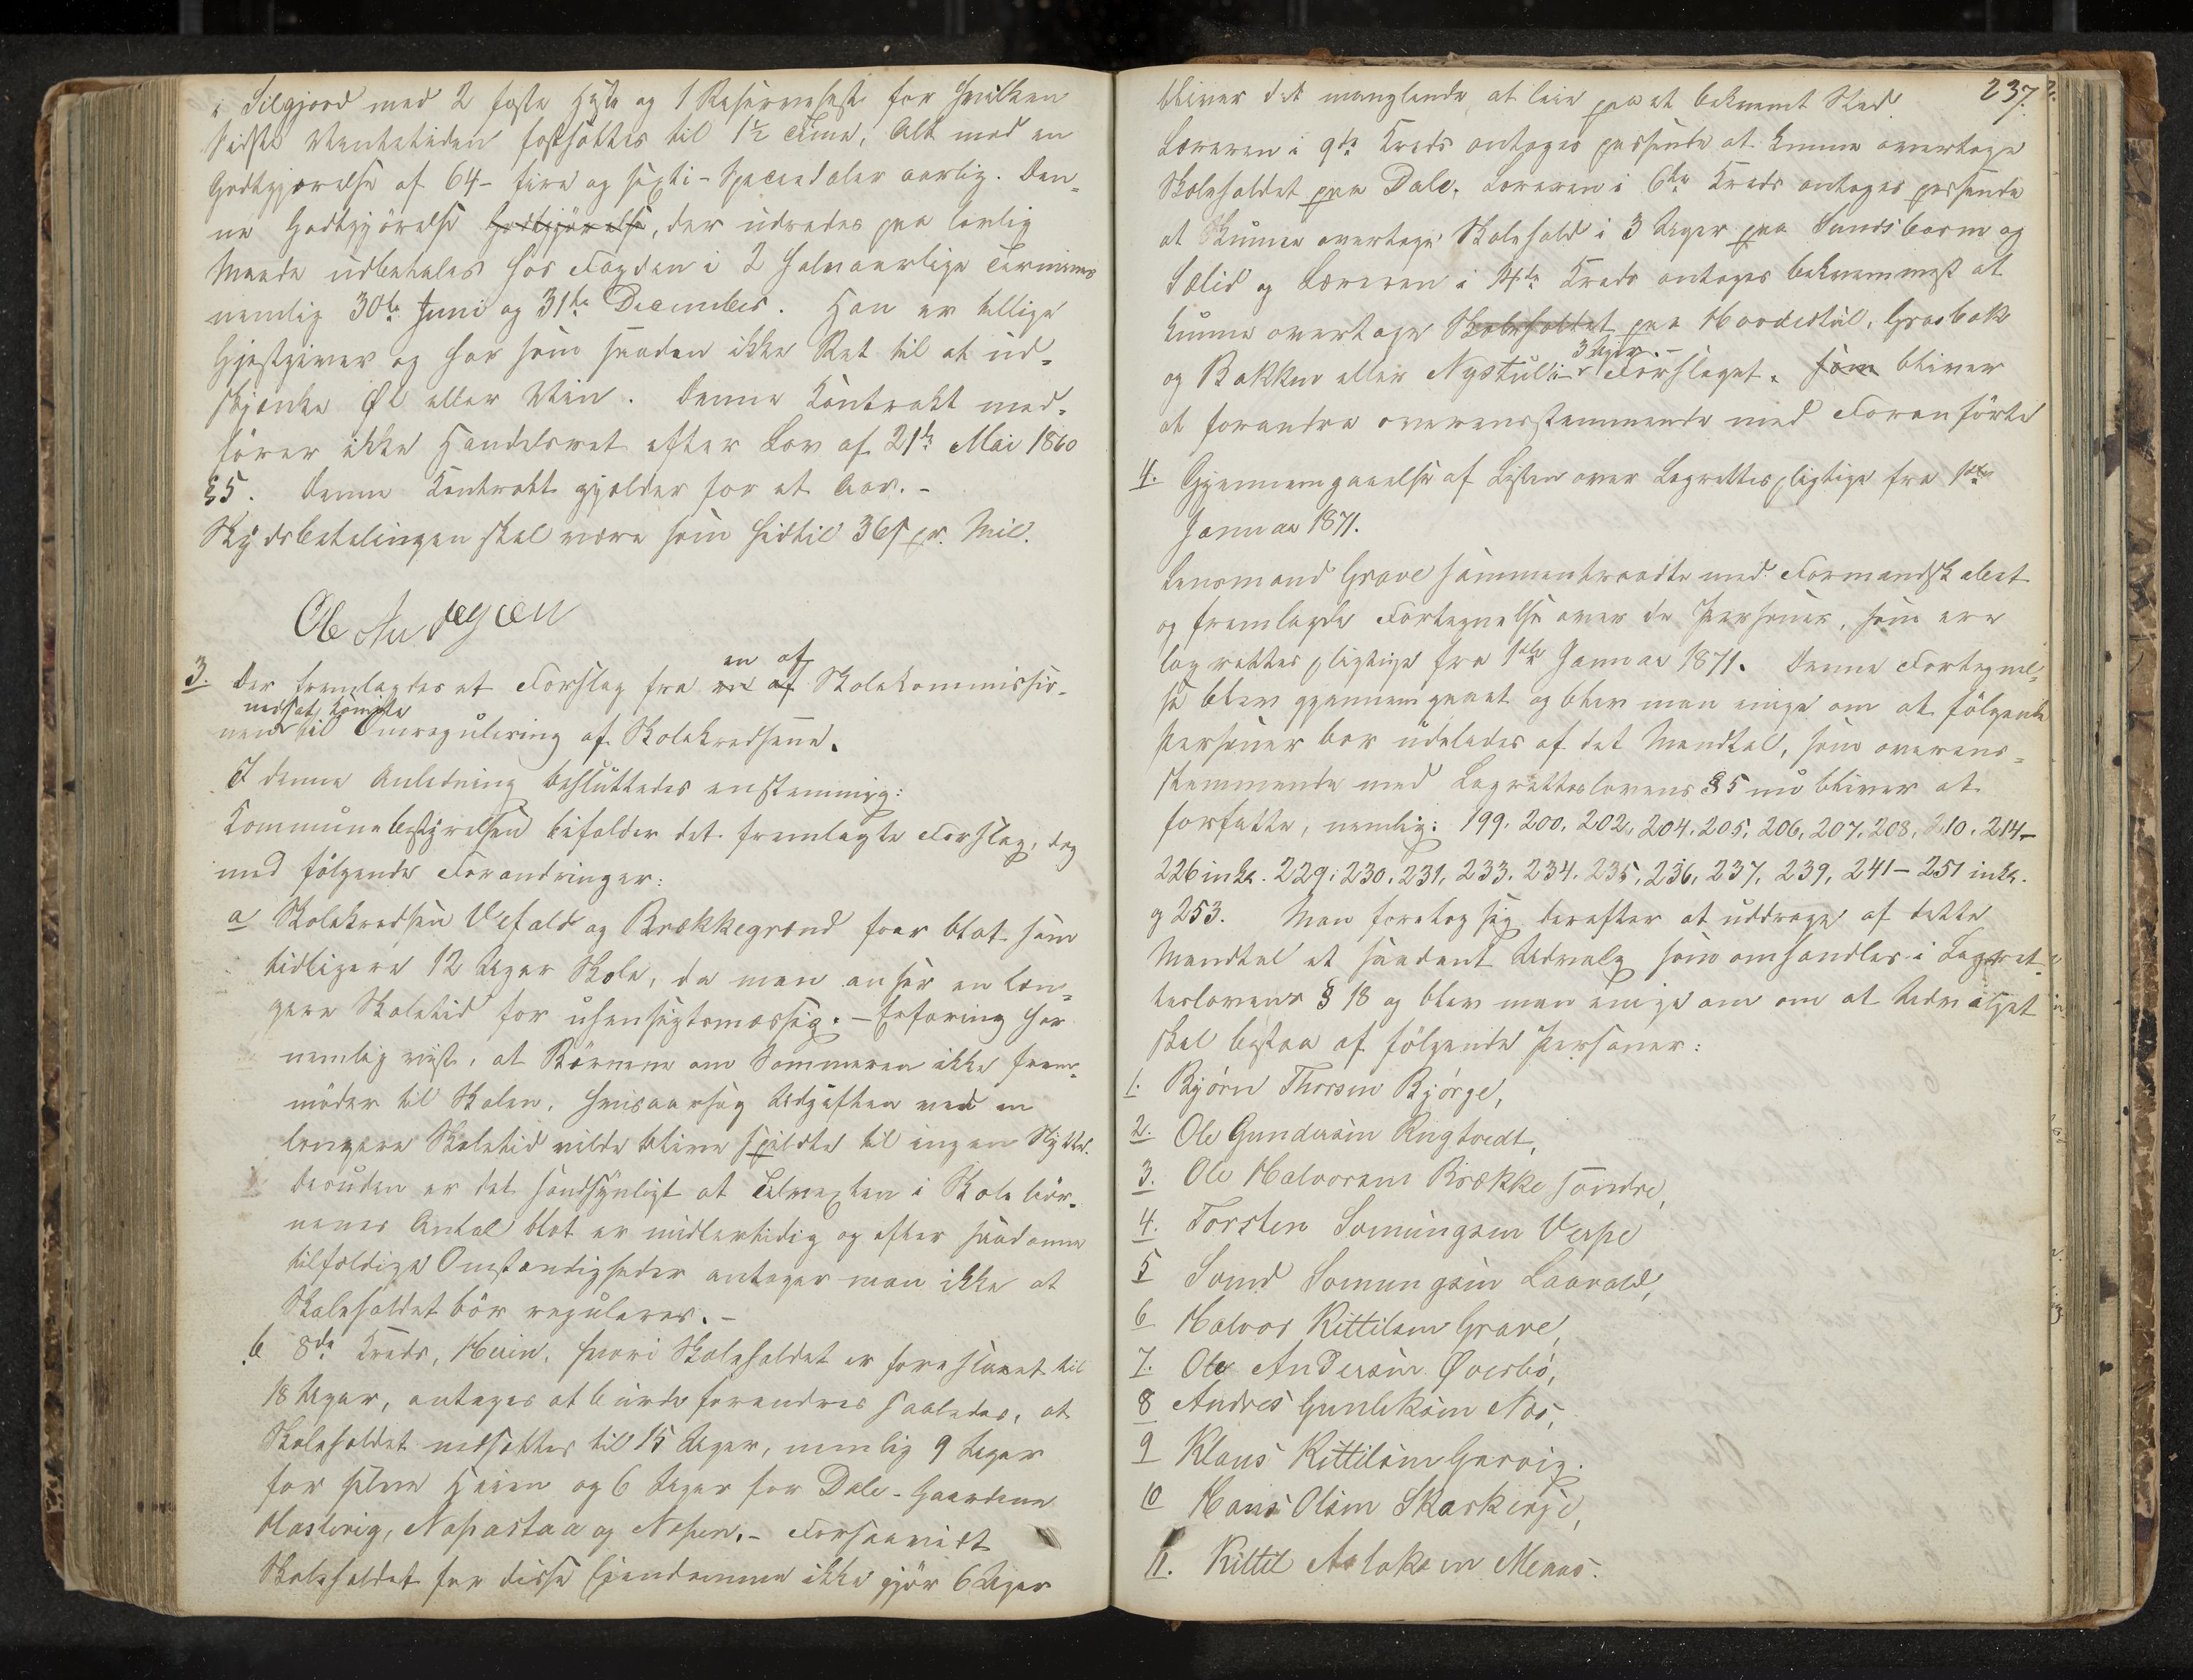 i Siljord med 2 faste Heste og 1 Reservehest for hvilken
sidste Ventetiden fastsættes til 1½ Time, Alt mod en
Godtgjørelse af 64 - fire og sexti - Speciedaler aarlig. Den-
ne Godtgjörelse Godtgjörelse, der udredes paa lovlig
Maade udbetales hos Fogden i 2 halvaarlige Terminer
nemlig 30te Juni og 31te December. Han er tillige
Gjestgiver og har som saadan ikke Ret til at ud-
skjænke Øl eller Vin. Denne Kontrakt med-
förer ikke Handelsret efter Lov af 21de Mai 1860
§5. Denne Kontrakt gjælder for et Aar. -
Skydsbetalingen skal være som hidtil 36 s pr. Mil.
Ole
3. Der fremlagdes et Forslag fra en af Skolekommissio-
nen nedsat Komite til Omregulering af Skolekredsene.
I denne Anledning besluttedes enstemmig:
Kommunebestyrelsen bifalder det fremlagte Forslag, dog
med følgende Forandringer:
a Skolekredsen Vefald og Brækkegrend faar blot som
tidligere 12 Uger Skole, da man anser en læn-
gere Skoletid for uhensigtsmæssig. - Erfaring har
nemlig vist, at Börnene om Sommeren ikke frem-
möder til Skolen, hvisaarsag Udgiften ved en
længere Skoletid vilde blive spildte til ingen Nytte.
desuden er det sandsynligt at Tilvexten i Skolebör-
nenes Antal blot er midlertidig og efter saadanne
tilfældige Omstændigheder antager man ikke at
Skoleholdet bör reguleres. -
b 8de Kreds, Heien, hvori Skoleholdet er foreslaaet til
18 Uger, antages at burde forandres saaledes, at
Skoleholdet nedsættes til 15 Uger, nemlig 9 Uger
for selve Heien og 6 Uger for Dale - Gaardene
Haslevig, Napastaa og Nepen. - Forsaavidt
Skoleholdet for disse Eiendomme ikke gjör 6 Uger
237.
bliver det manglende at leie paa et bekvemt Sted.
Læreren i 9de Kreds antages passende at kunne overtage
Skoleholdet paa Dale. Læreren i 6te Kreds antages passende
at kunne overtage Skolehold i 3 Uger paa Sundsbarm og
Sælid og Læreren i 14de Kreds antages bekvemmest at
kunne overtage Skoleholdet paa Haadestul, Grasbak
og Bakken eller Nystul i 3 Uger. - Forslaget som bliver
at forandre overensstemmende med Foranförte
4. Gjennemgaaelse af Listen over Lagrettespligtige fra 1ste
Januar 1871.
Lensmand Grave sammentraadte med Formandskabet
og fremlagde Fortegnelse over de Personer, som ere
lagrettespligtige fra 1ste Januar 1871. Denne Fortegnel-
se blev gjennemgaaet og blev man enige om at fölgende
Personer bör udelades af det Mandtal, som overens-
stemmende med Lagretteslovens §5 nu bliver at
forfatte, nemlig: 199. 200. 202. 204. 205. 206. 207. 208. 210. 214-
226 inkl. 229. 230. 231. 233. 234. 235. 236. 237. 239. 241 - 251 inkl.
og 253. Man foretog sig derefter at uddrage af dette
Mandtal et saadant Udvalg som omhandles i Lagret-
teslovens § 18 og blev man enige om om at Udvalget
skal bestaa af fölgende Personer:
1. Björn Thorsen Björge,
2. Ole Gundersen Rugtvedt,
3. Ole Halvorsen Brække söndre,
4. Torsten Somungsen Verpe
5 Sond Somungsen Laavald,
6 Halvor Kittilsen Grave,
7. Ole Andersen Øverbö,
8 Andres Gunleksen Næs,
9 Klaus Kittilsen Garvig.
10 Hans Olsen Skarkenje,
11. Kittil Aslaksen Menaas.